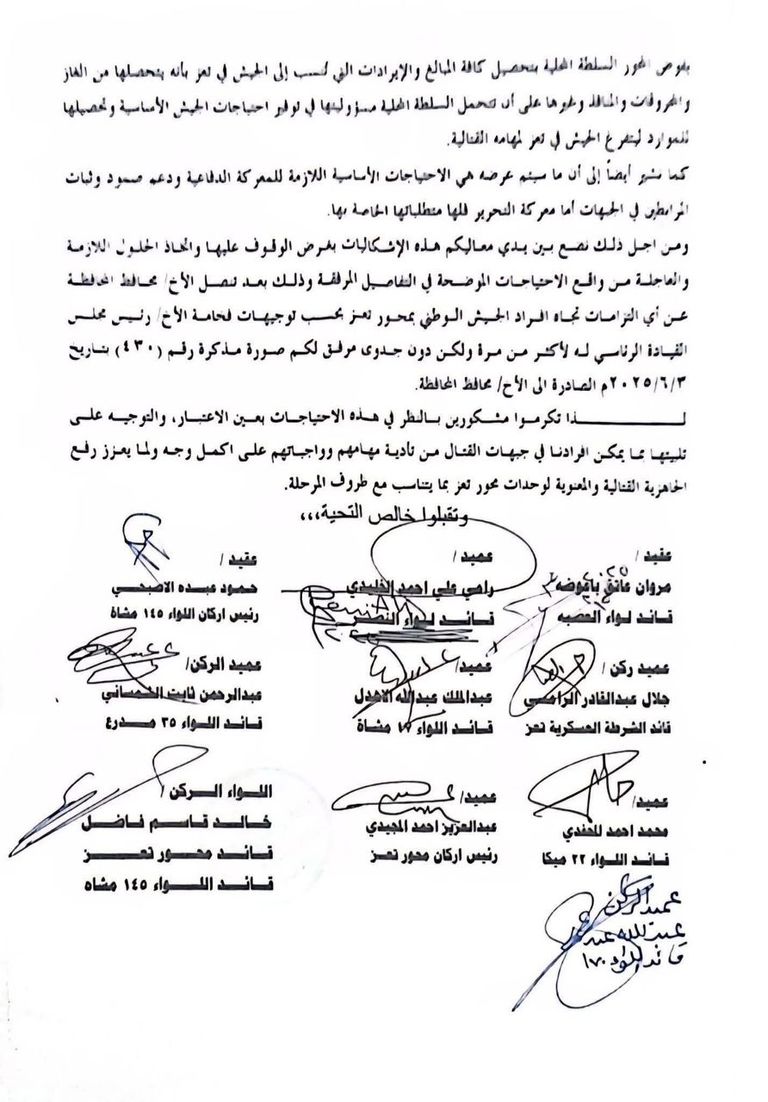 يفوض المحور السلطة المحلية بتحصيل كافة المبالغ والإيرادات التي تنسب إلى الجيش في تعز بأنه يتحصلها من الغاز
والمحروقات والمنافذ وغيرها على أن تتحمل السلطة المحلية مسؤوليتها في توفير احتياجات الجيش الأساسية وتحصيلها
للموارد ليتفرغ الجيش في تعز لمهامه القتالية.
كما نشير أيضاً إلى أن ما سيتم عرضه هي الاحتياجات الأساسية اللازمة للمعركة الدفاعية ودعم صمود وثبات
المرابطين في الجبهات أما معركة التحرير فلها متطلباتها الخاصة بها.
ومن اجل ذلك نضع بين يدي معاليكم هذه الإشكاليات بغرض الوقوف عليها واتخاذ الحلول اللازمة
والعاجلة من واقع الاحتياجات الموضحة في التفاصيل المرفقة وذلك بعد تنصل الأخ/ محافظ المحافظة
عن أي التزامات تجاه افراد الجيش الوطني بمحور تعز بحسب توجيهات فخامة الأخ/ رئيس مجلس
القيادة الرئاسي له لأكثر من مرة ولكن دون جدوى مرفق لكم صورة مذكرة رقم (٤٣٠) بتاريخ
٢٠٢٥/٦/٣م الصادرة الى الأخ/ محافظ المحافظة.
لــــذا تكرموا مشكورين بالنظر في هذه الاحتياجات بعين الاعتبار، والتوجيه على
تلبيتها بما يمكن افرادنا في جبهات القتال من تأدية مهامهم وواجباتهم على اكمل وجه ولما يعزز رفع
الجاهزية القتالية والمعنوية لوحدات محور تعز بما يتناسب مع ظروف المرحلة.
وتقبلوا خالص التحية،،،
عقيد /
مروان عاتق باعوضه
قائد لواء العصبه
عميد /
رامي علي احمد الخليدي
قائد لواء النصر
عقيد /
حمود عبده الاصبحي
رئيس اركان اللواء ١٤٥ مشاة
عميد ركن /
جلال عبدالقادر
قائد الشرطة العسكرية تعز
عميد/
عبدالملك عبدالله الاهدل
قائد اللواء ١٧ مشاة
عميد الركن/
عبدالرحمن ثابت الشمساني
قائد اللواء ٣٥ مدرع
عميد/
محمد احمد المحفدي
قائد اللواء ٢٢ ميكا
عميد/
عبدالعزيز احمد المجيدي
رئيس اركان محور تعز
اللواء الركن/
خالد قاسم فاضل
قائد محور تعز
قائد اللواء ١٤٥ مشاه
عميد الركن
عبدالله
قائد اللواء ١٧٠